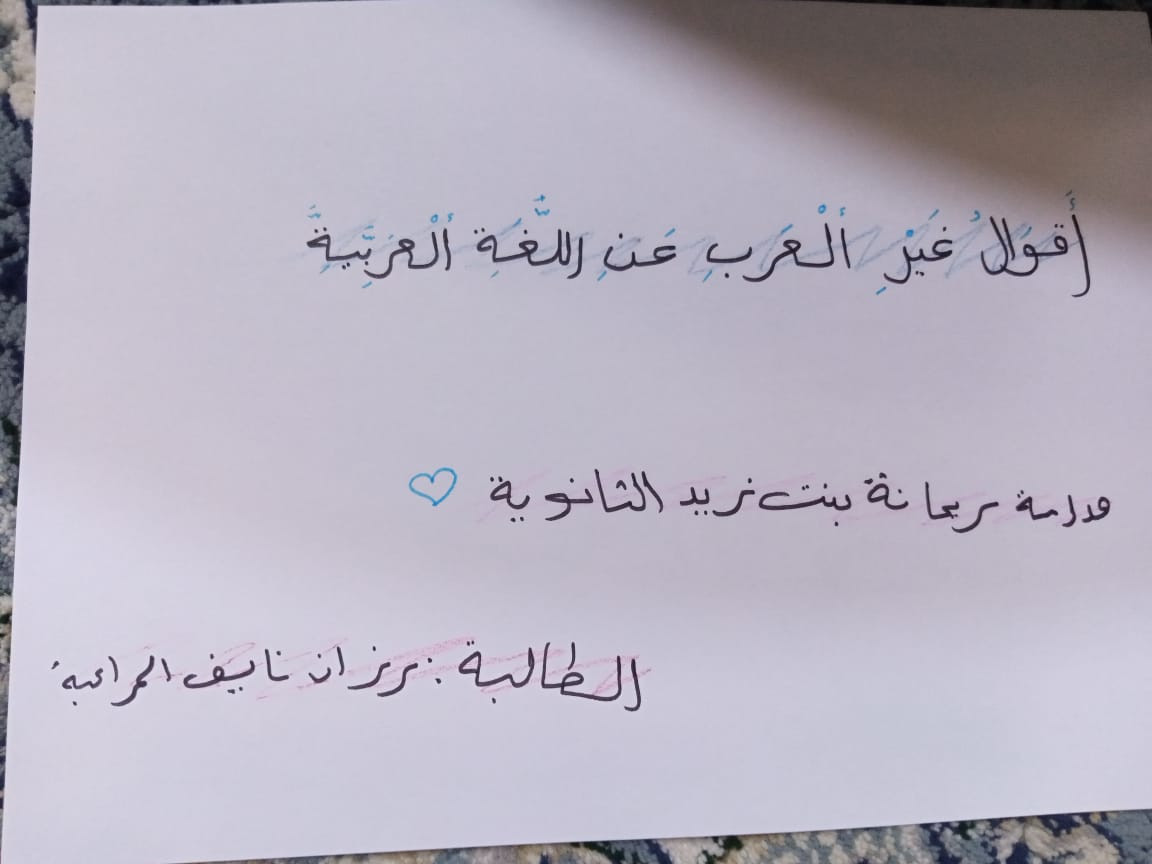 أَقوَالُ غَيْرِ أَلْعَرَبِ عَنِ اللُّغَةِ أَلْعَرَبِّيةِّ
مدرسة ريحانة بنت زيد الثانوية ♡
الطالبة : رزان نايف المراعبة